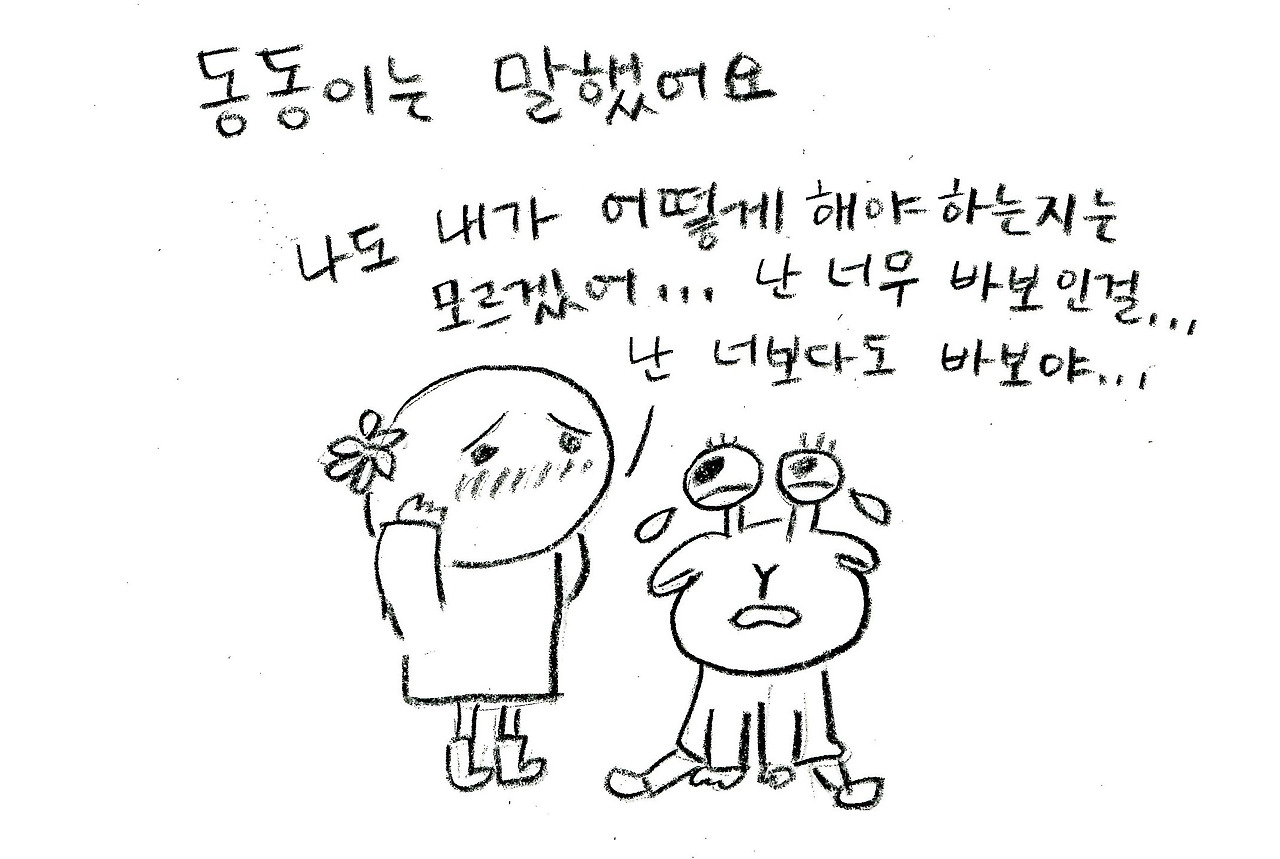 동동이는 말했어요
나도 내가 어떻게 해야 하는지는
모르겠어... 난 너무 바보인걸...
난 너보다도 바보야...